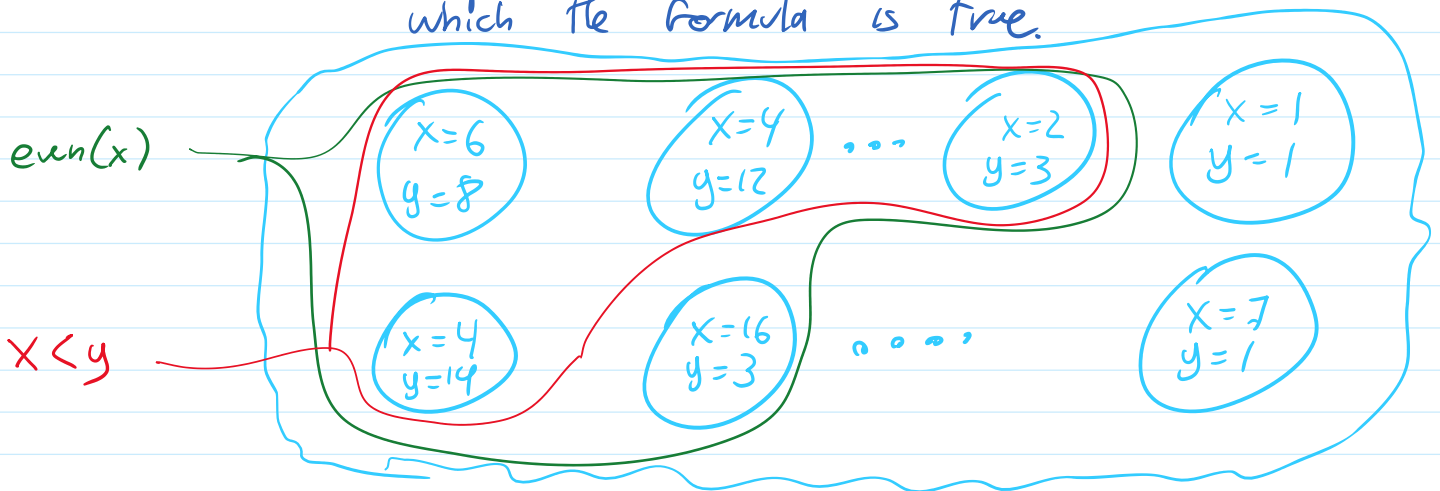 which the formula is true.
even(x)
x=6
y=8
x=4
y=12
...
x=2
y=3
x=1
y=1
x<y
x=4
y=14
x=16
y=3
....
x=7
y=1